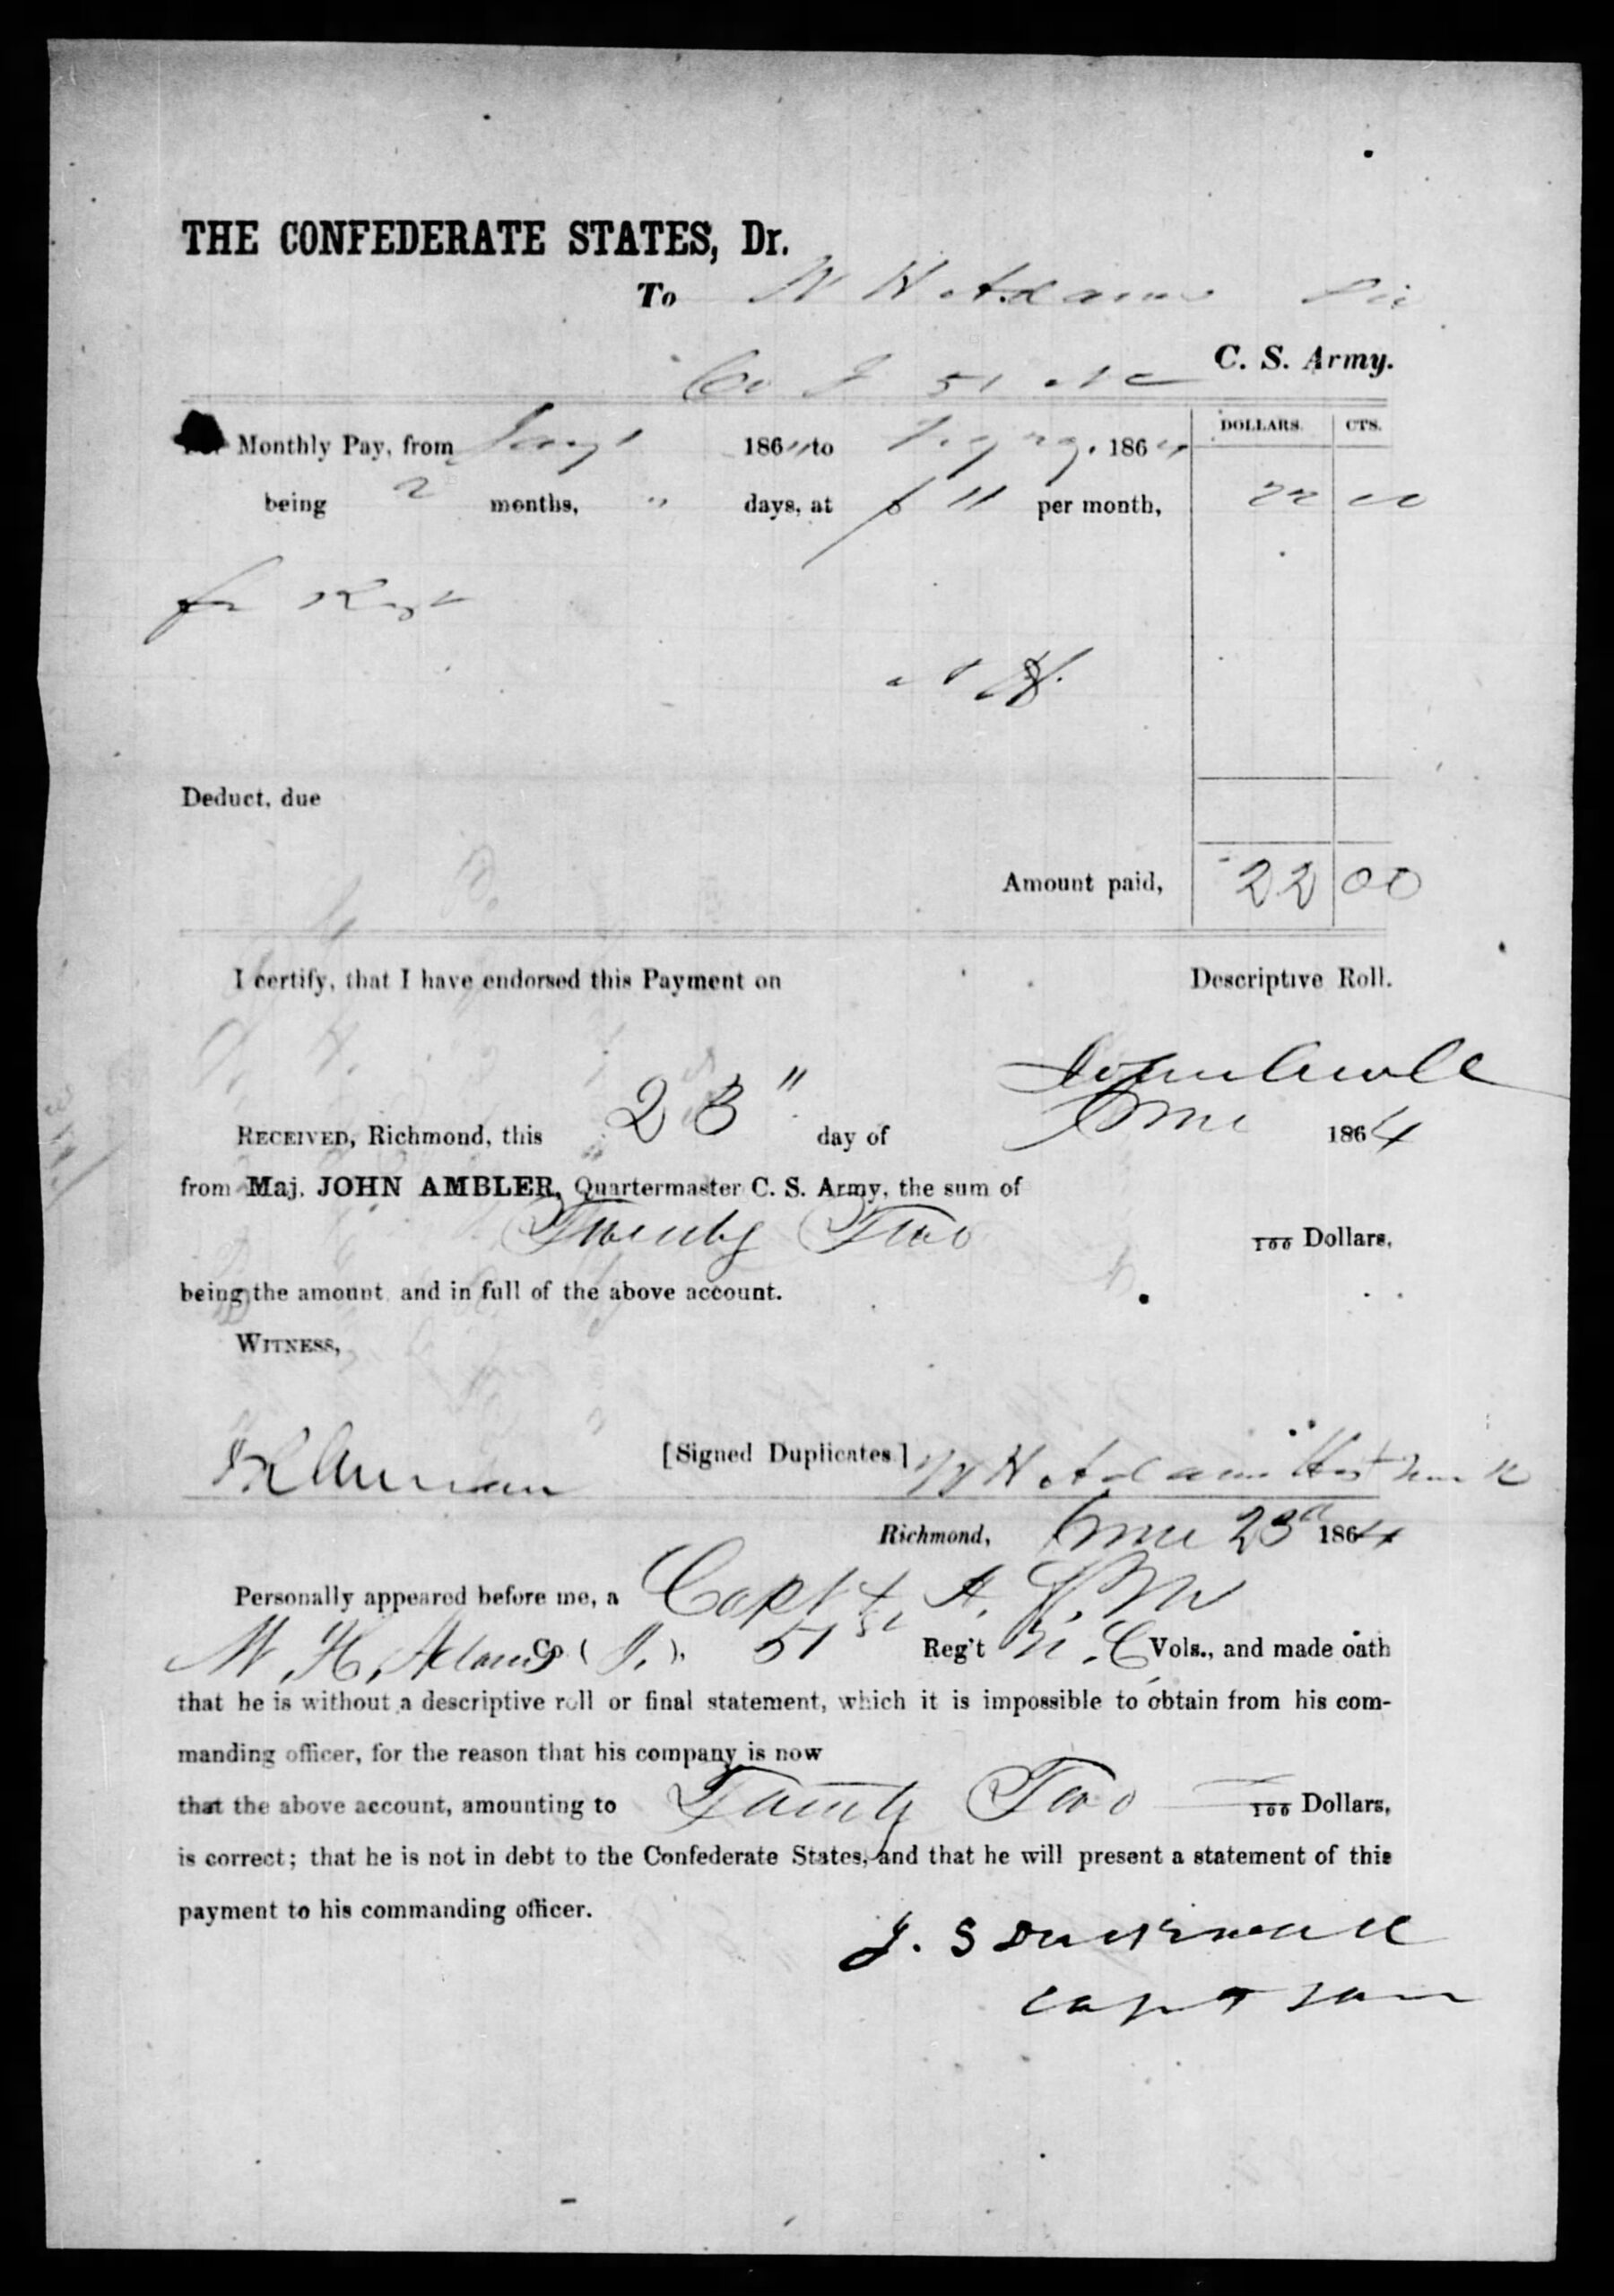 THE CONFEDERATE STATES, Dr.
To W H Adams
C. S. Army.
Co 51 NC
DOLLARS. CTS.
Monthly Pay, from Jany 1 1864 to 1864
being 2 months, " days, at $ 11 per month, 22 00
for
Deduct, due
Amount paid, 22 00
I certify, that I have endorsed this Payment on Descriptive Roll.
RECEIVED, Richmond, this 23" day of June 1864
from Maj. JOHN AMBLER, Quartermaster C. S. Army, the sum of
Twenty Two 100 Dollars,
being the amount and in full of the above account.
WITNESS,
[Signed Duplicates] W H Adams
Richmond, June 23d 1864
Personally appeared before me, a Capt & A. Q. M
W. H. Adams Co ( ). 51st Reg't N. C Vols., and made oath
that he is without a descriptive roll or final statement, which it is impossible to obtain from his com-
manding officer, for the reason that his company is now
that the above account, amounting to Twenty Two 100 Dollars,
is correct; that he is not in debt to the Confederate States, and that he will present a statement of this
payment to his commanding officer.
J. S
Capt